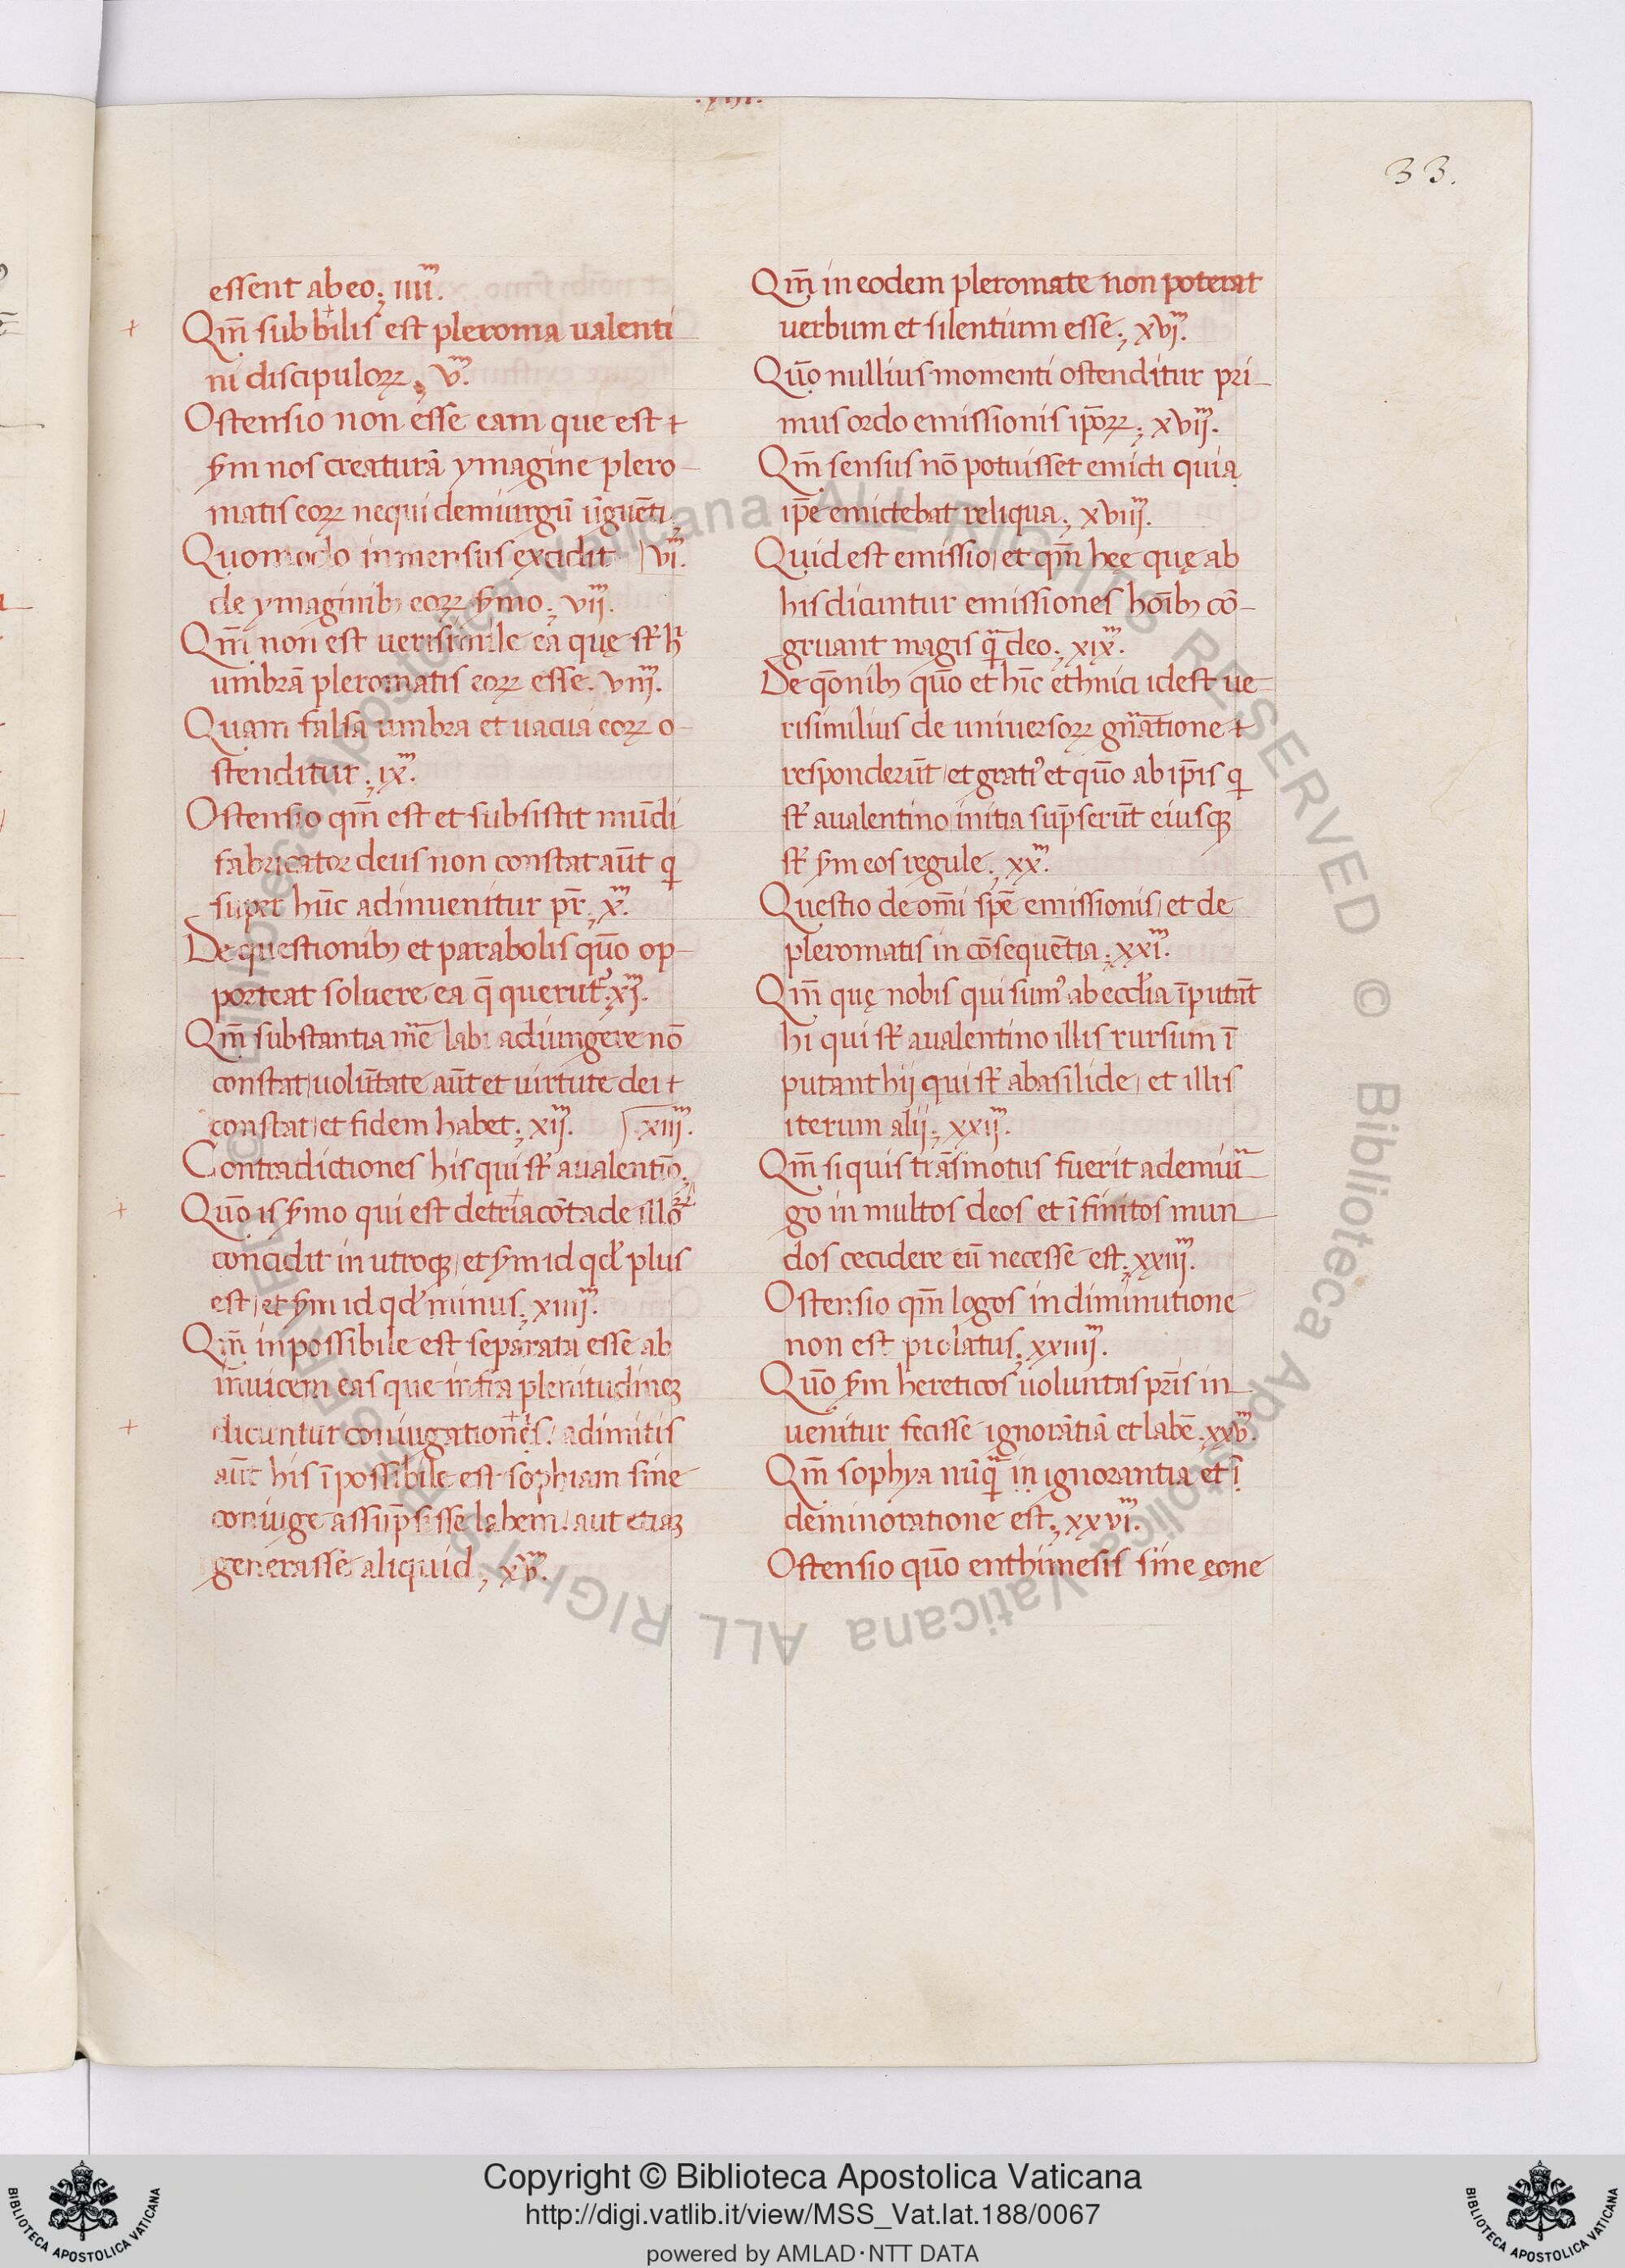 33.
essent ab eo; iiiiᵐ.
Qm̄ subbilis est pleroma ualenti
ni discipuloꝝ; vᵐ.
Ostensio non esse eam que est +
s̄m nos creaturā ymagine plero-
matis eoꝝ nequi demiurgū
Quomodo inmensus excidit vıᵐ.
de ymaginib; eoꝝ s̄mo; vijᵐ.
Qm̄ non est uerisimile ea quę st̄ h̄
umbrā pleromatis eoꝝ esse. viijᵐ.
Quam falsa umbra et uacua eoꝝ o-
stenditur; ixᵐ.
Ostensio qm̄ est et subsistit mūdi
fabricator deus non constat aūt q
super hūc adinuenitur pr̄; xᵐ.
De questionib; et parabolis quō op-
porteat soluere ea q̄ querūt; xjᵐ.
Qm̄ substantia mr̄e labi adiungere nō
constat uolūtate aūt et uirtute dei +
constat et fidem habet; xijᵐ. xiijᵐ.
Contradictiones his qui st̄ aualentīo.
Quō is s̄mo qui est de triacōtade illoꝝ
concidit in utroqꝫ et s̄m id qd̄ plus
est et s̄m id qd̄ minus; xiiijᵐ.
Qm̄ inpossibile est separata esse ab
inuicem eas que infra plenitudineꝫ
dicuntur coniugationes adimitis
aūt his īpossibile est sophiam sine
coniuge assūpsisse labem aut etiaꝫ
generasse aliquid; xvᵐ.
Qm̄ in eodem pleromate non poterat
uerbum et silentium esse; xvjᵐ.
Quō nullius momenti ostenditur pri-
mus ordo emissionis ip̄oꝝ; xvijᵐ.
Qm̄ sensus nō potuisset emicti quia
ip̄e emictebat reliqua; xviijᵐ.
Quid est emissio et qm̄ hęę quę ab
his dicuntur emissiones hoīb; cō-
gruant magis q̄ deo; xixᵐ.
De q̄onib; quō et hīc ethnici idest ue-
risimilius de universoꝝ gn̄atione +
responderūt et grati et quō ab ip̄is q
st̄ aualentino initia sūpserūt eiusqꝫ
st̄ s̄m eos regule; xxᵐ.
Questio de om̄i sp̄e emissionis et de
pleromatis in cōsequētia; xxıᵐ.
Qm̄ quę nobis qui sum᾽ ab eccl̄ia īputāt
hi qui st̄ aualentino illis rursum ī
putant hij qui st̄ abasilide et illis
iterum alij; xxijᵐ.
Qm̄ siquis trāsmotus fuerit ademiur
go in multos deos et īfinitos mun
dos cecidere eū necesse est; xxiijᵐ.
Ostensio qm̄ logos in diminutione
non est prolatus; xxiiijᵐ.
Quō s̄m hereticos uoluntas pr̄is in
uenitur fecisse ignorātiā et labē. xxvᵐ.
Qm̄ sophya nūq̄ in ignorantia et ī
deminoratione est; xxvıᵐ.
Ostensio quō enthimesis sine ęone
BIBLIOTECA APOSTOLICA VATICANA
Copyright © Biblioteca Apostolica Vaticana
http://digi.vatlib.it/view/MSS_Vat.lat.188/0067
powered by AMLAD·NTT DATA
BIBLIOTECA APOSTOLICA VATICANA
© Biblioteca Apostolica Vaticana ALL RIGHTS RESERVED © Biblioteca Apostolica Vaticana ALL RIGHTS RESERVED